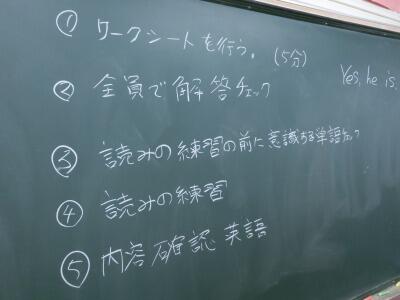 ① ワークシートを行う。(5分)
Yes, he is.
② 全員で解答チェック
③ 読みの練習の前に意識する単語チェック
④ 読みの練習
⑤ 内容確認 英語